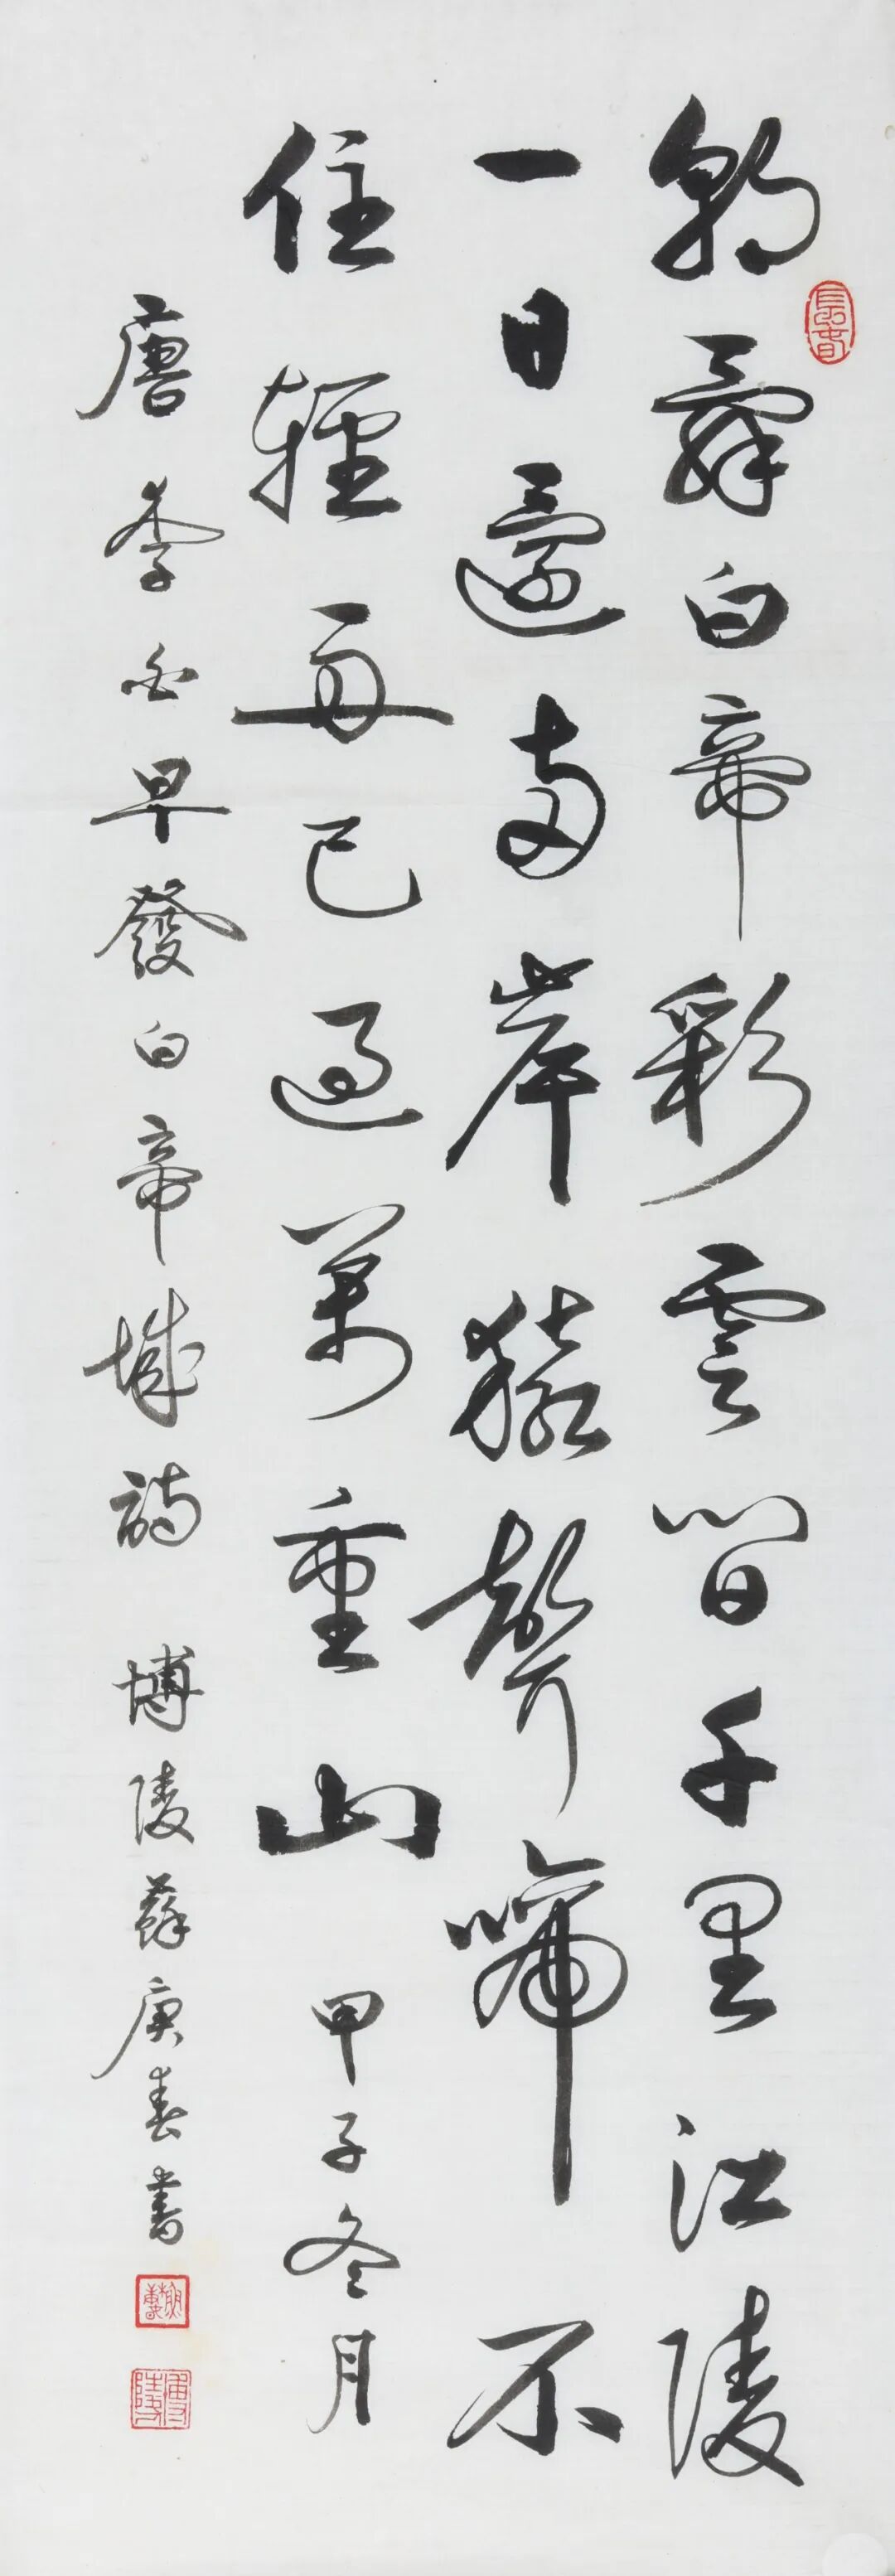 朝辭白帝彩雲間千里江陵
一日還兩岸猿聲啼不
住輕舟已過萬重山 甲子冬月
唐李白早發白帝城詩 博陵蘇庚春書
博陵